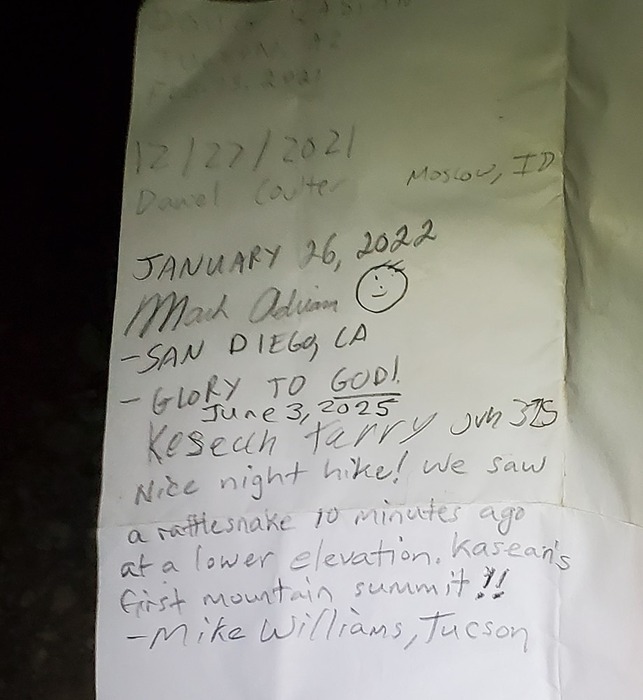 2021
12/27/2021
Daniel Coulter Moscow, ID
JANUARY 26, 2022
Mark Adrian
-SAN DIEGO, CA
- GLORY TO GOD!
June 3, 2025
Tarry Jun 3 25
Nice night hike! We saw
a rattlesnake 10 minutes ago
at a lower elevation. Kasean's
first mountain summit!!
-Mike Williams, Tucson